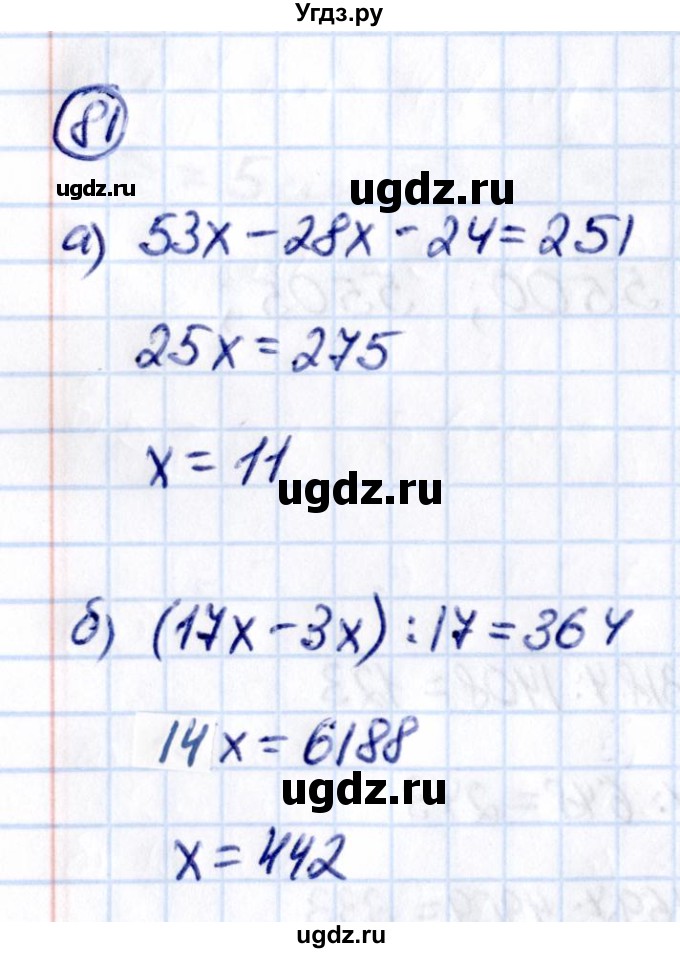 Угдз.ру
81
ugdz.ru
ugdz.ru
а) 53x - 28x - 24 = 251
25x = 275
x = 11
ugdz.ru
б) (17x - 3x) : 17 = 364
14x = 6188
ugdz.ru
x = 442
ugdz.ru